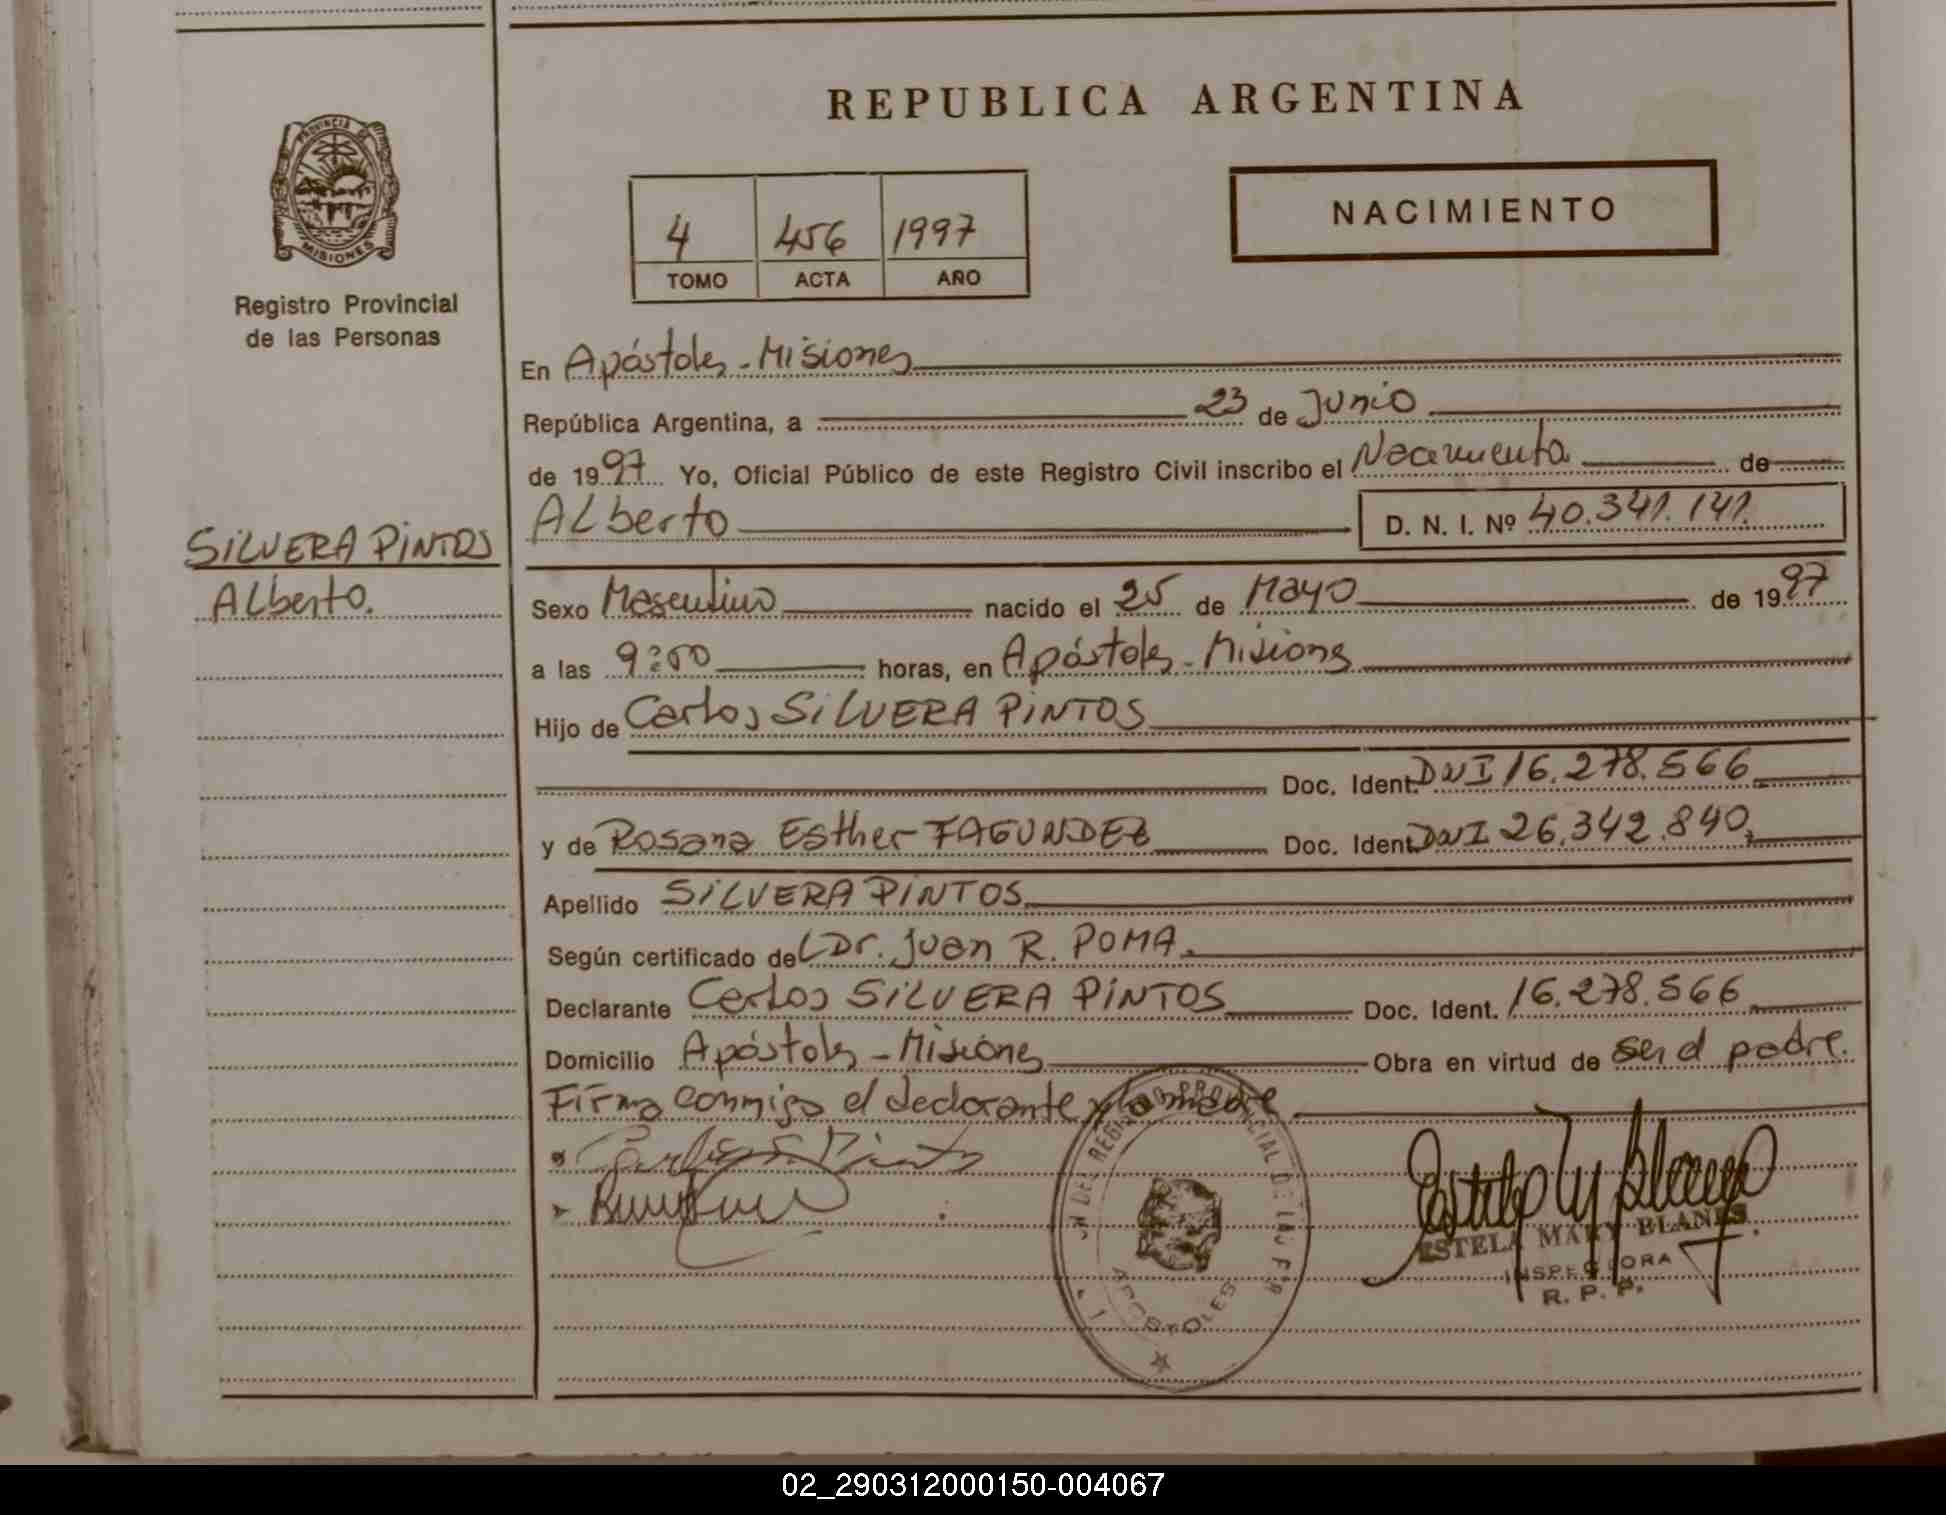 REPUBLICA ARGENTINA
PROVINCIA DE
MISIONES
Registro Provincial
de las Personas
4 456 1997
TOMO ACTA AÑO
NACIMIENTO
En Apóstoles - Misiones
República Argentina, a 23 de Junio
de 1997 Yo, Oficial Público de este Registro Civil inscribo el Nacimiento de
Alberto D. N. I. Nº 40.341.141.
SILVERA PINTOS
Alberto.
Sexo Masculino nacido el 25 de Mayo de 1997
a las 9:00 horas, en Apóstoles - Misiones
Hijo de Carlos SILVERA PINTOS
Doc. Ident. DNI 16.278.566
y de Rosana Esther FAGUNDEZ Doc. Ident. DNI 26.342.840,
Apellido SILVERA PINTOS
Según certificado del Dr. Juan R. POMA.
Declarante Carlos SILVERA PINTOS Doc. Ident. 16.278.566
Domicilio Apóstoles - Misiones Obra en virtud de ser el padre.
Firma conmigo el declarante y la madre
DEL REGISTRO PROVINCIAL DE LAS PER
APOSTOLES
ESTELA MARY BLANES
INSPECTORA
R. P. P.
02_290312000150-004067